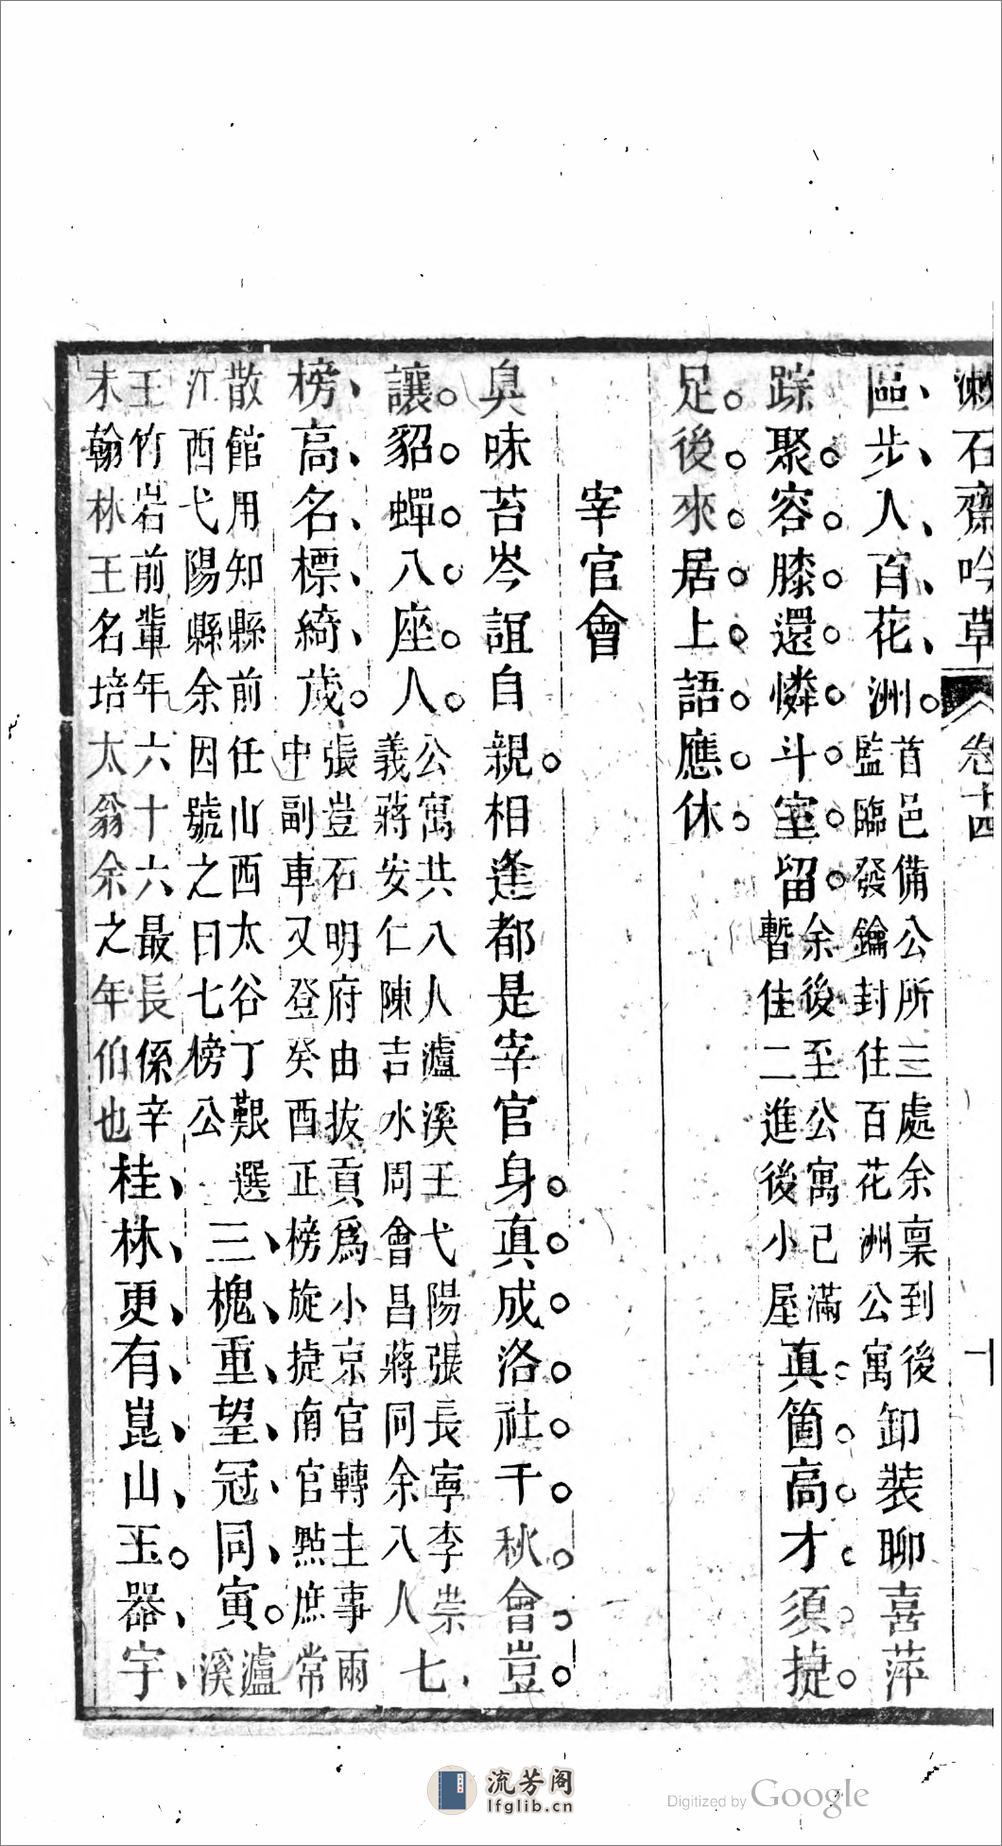 漱石齋吟草 卷十四 十
區步入百花洲首邑備公所三處余稟到後監臨發鑰封住百花洲公寓卸裝聊喜萍
踪聚容膝還憐斗室留余後至公寓已滿暫住二進後小屋真箇高才須捷
足後來居上語應休
宰官會
臭味苔岑誼自親相逢都是宰官身真成洛社千秋會豈
讓貂蟬八座人公寓共八人瀘溪王弋陽張長寧李崇義蔣安仁陳吉水周會昌蔣同余八人七
榜高名標綺歲張豈石明府由拔貢為小京官轉主事雨中副車又登癸酉正榜旋捷南官點庶常
散館用知縣前任山西太谷丁艱選江西弋陽縣余因號之曰七榜公三槐重望冠同寅瀘溪
王竹岩前輩年六十六最長係辛未翰林王名培太翁余之年伯也桂林更有崑山玉器宇
流芳阁
lfglib.cn
Digitized by Google